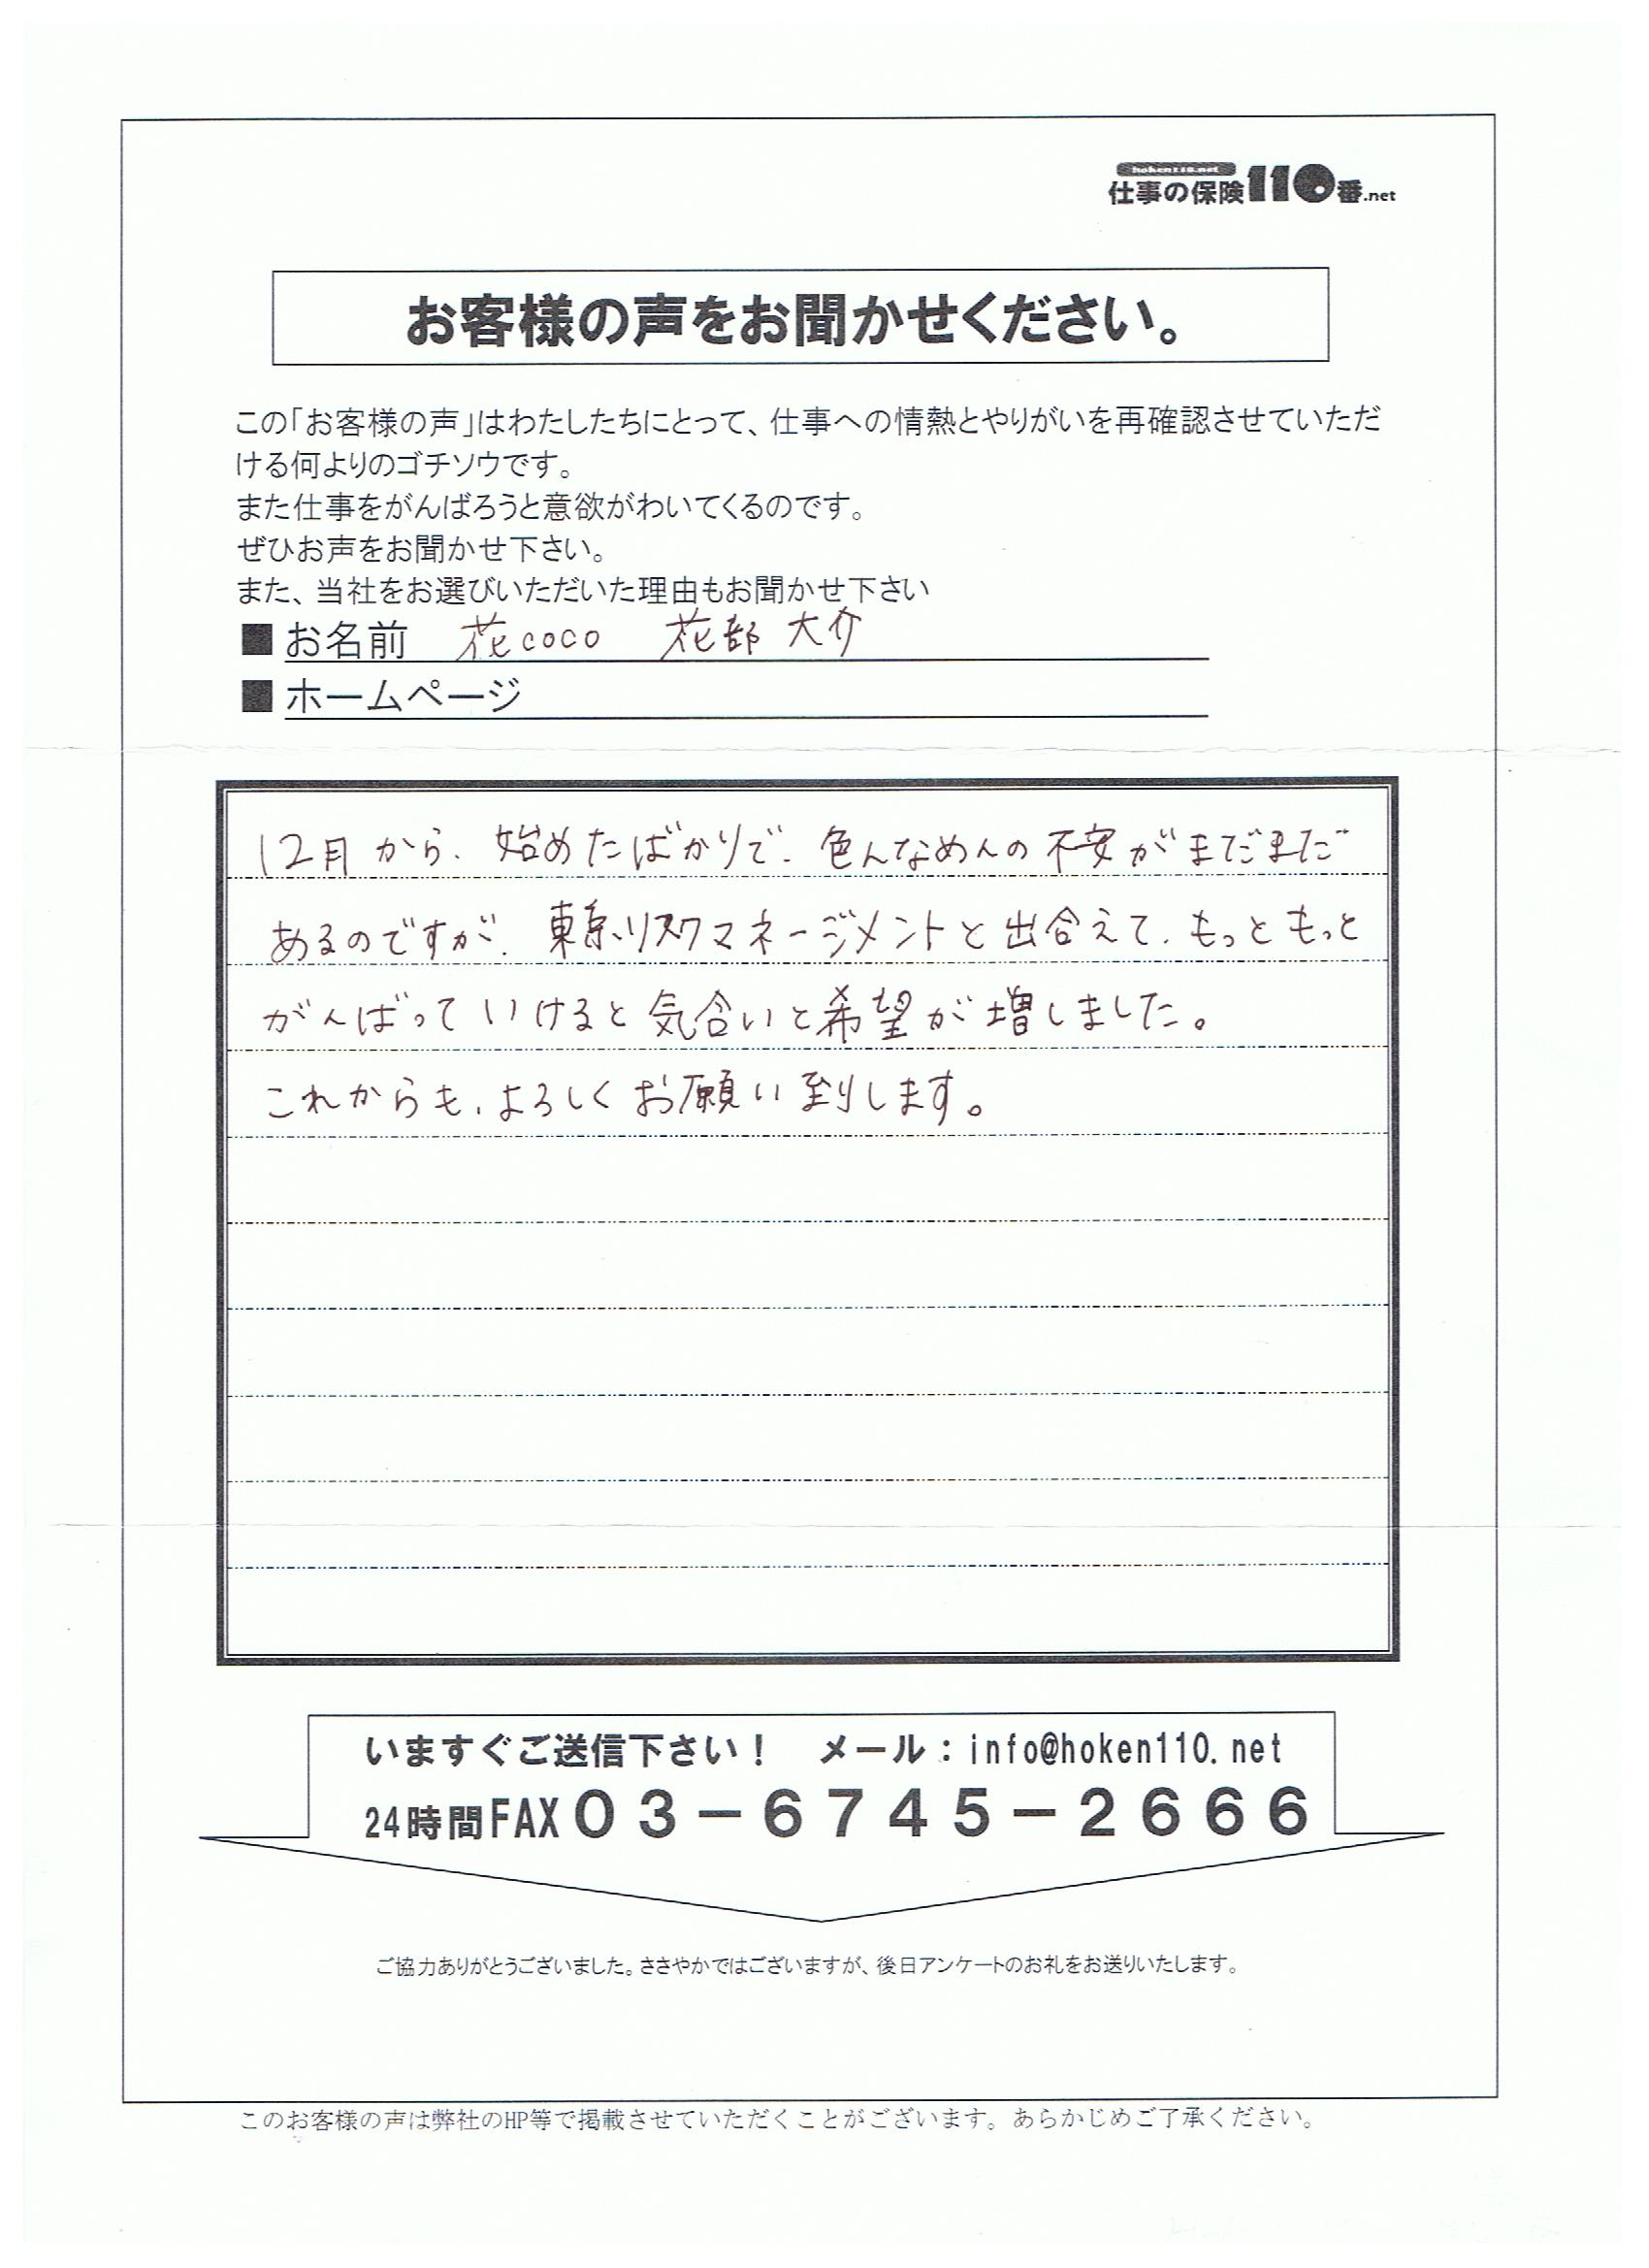 hoken110.net
仕事の保険110番.net
お客様の声をお聞かせください。
この「お客様の声」はわたしたちにとって、仕事への情熱とやりがいを再確認させていただ
ける何よりのゴチソウです。
また仕事をがんばろうと意欲がわいてくるのです。
ぜひお声をお聞かせ下さい。
また、当社をお選びいただいた理由もお聞かせ下さい
■お名前 花coco 花部 大介
■ホームページ
12月から、始めたばかりで、色んなめんの不安がまだまだ
あるのですが、東京リスクマネージメントと出合えて、もっともっと
がんばっていけると気合いと希望が増しました。
これからも、よろしくお願い到します。
いますぐご送信下さい！ メール：info@hoken110.net
24時間FAX０３－６７４５－２６６６
ご協力ありがとうございました。ささやかではございますが、後日アンケートのお礼をお送りいたします。
このお客様の声は弊社のHP等で掲載させていただくことがございます。あらかじめご了承ください。